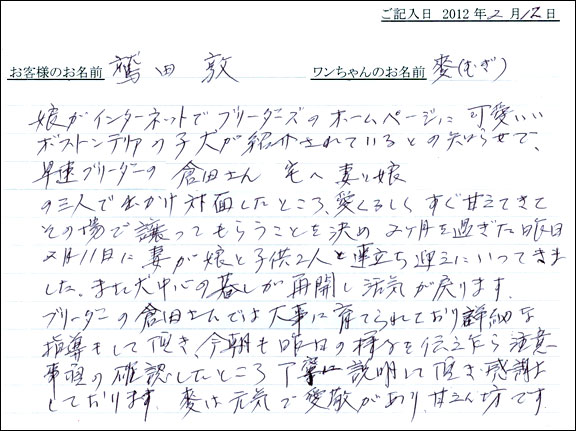 ご記入日 2012年2月12日
お客様のお名前 鷲田 敦 ワンちゃんのお名前 麥(むぎ)
娘がインターネットでブリーダーズのホームページに可愛いい
ボストンテリアの子犬が紹介されているとの知らせで、
早速ブリーダーの 倉田さん 宅へ 妻と娘
の三人で出かけ対面したところ、愛くるしくすぐ甘えてきて
その場で譲ってもらうことを決め 2ヶ月を過ぎた昨日
2月11日に妻が娘と子供2人と連立ち迎えにいってきま
した。また犬中心の暮しが再開し活気が戻ります。
ブリーダーの倉田さんでは大事に育てられており詳細な
指導もして頂き、今朝も昨日の様子を伝えたら注意
事項の確認したところ丁寧に説明して頂き感謝を
しております。麥は元気で愛敬があり、甘えん坊です。